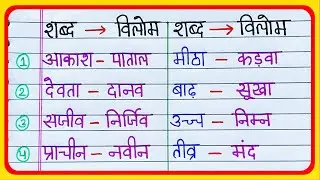 शब्द → विलोम शब्द → विलोम
① आकाश – पाताल मीठा – कड़वा
② देवता – दानव बाढ़ – सूखा
③ सजीव – निर्जिव उच्च – निम्न
④ प्राचीन – नवीन तीव्र – मंद